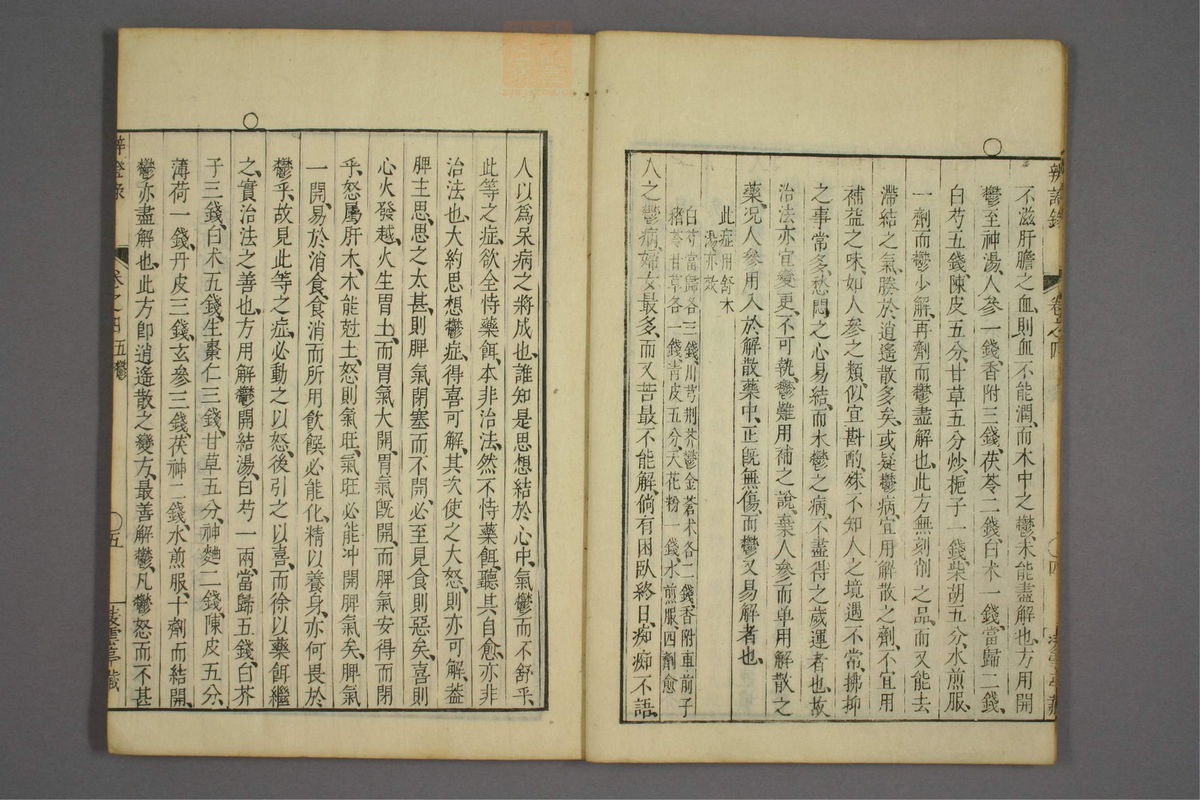 不滋肝膽之血則血不能潤而木中之鬱未能盡解也、方用開
鬱至神湯、人參一錢、香附三錢、茯苓二錢、白术一錢、當歸二錢、
白芍五錢、陳皮五分、甘草五分、炒梔子一錢、柴胡五分、水煎服、
一劑而鬱少解、再劑而鬱盡解也、此方無刻削之品、而又能去
滯結之氣、勝於逍遙散多矣、或疑鬱病宜用解散之劑、不宜用
補益之味、如人參之類、似宜斟酌、殊不知人之境遇不常、拂抑
之事常多、愁悶之心易結、而木鬱之病、不盡得之歲運者也、故
治法亦宜變更、不可執鬱難用補之說、棄人參而单用解散之
藥、况人參用入於解散藥中、正旣無傷、而鬱又易解者也、
此症用舒木
湯亦效
白芍當歸各三錢、川芎荆芥鬱金蒼术各二錢、香附車前子
猪苓甘草各一錢、青皮五分、天花粉一錢、水煎服、四劑愈
人之鬱病、婦女最多、而又苦最不能解、倘有困臥終日、痴痴不語、
辨證錄
卷之四
〇四
人以爲呆病之將成也、誰知是思想結於心中、氣鬱而不舒乎、
此等之症、欲全恃藥餌、本非治法、然不恃藥餌、聽其自愈、亦非
治法也、大約思想鬱症、得喜可解、其次使之大怒、則亦可解、葢
脾主思、思之太甚、則脾氣閉塞而不開、必至見食則惡矣、喜則
心火發越、火生胃土、而胃氣大開、胃氣旣開、而脾氣安得而閉
乎、怒屬肝木、木能尅土、怒則氣旺、氣旺必能冲開脾氣矣、脾氣
一開、易於消食、食消而所用飲饌必能化精以養身、亦何畏於
鬱乎、故見此等之症、必動之以怒、後引之以喜、而徐以藥餌繼
之、實治法之善也、方用解鬱開結湯、白芍一兩、當歸五錢、白芥
子三錢、白术五錢、生棗仁三錢、甘草五分、神麯二錢、陳皮五分、
薄荷一錢、丹皮三錢、玄參三錢、茯神二錢、水煎服、十劑而結開、
鬱亦盡解也、此方卽逍遙散之變方、最善解鬱、凡鬱怒而不甚
卷之四五鬱
〇五